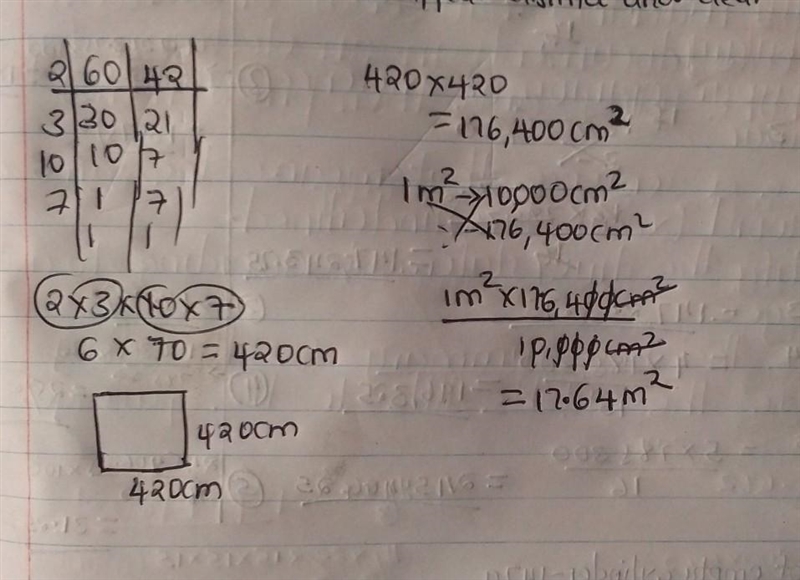 2 | 60 | 42
3 | 30 | 21
10 | 10 | 7
7 | 1 | 7
1 | 1
2 x 3 x 10 x 7
6 x 70 = 420cm
420cm
420cm
420 x 420
= 176,400cm²
1m² → 10,000cm²
? → 176,400cm²
1m² x 176,400cm²
10,000cm²
= 17.64m²